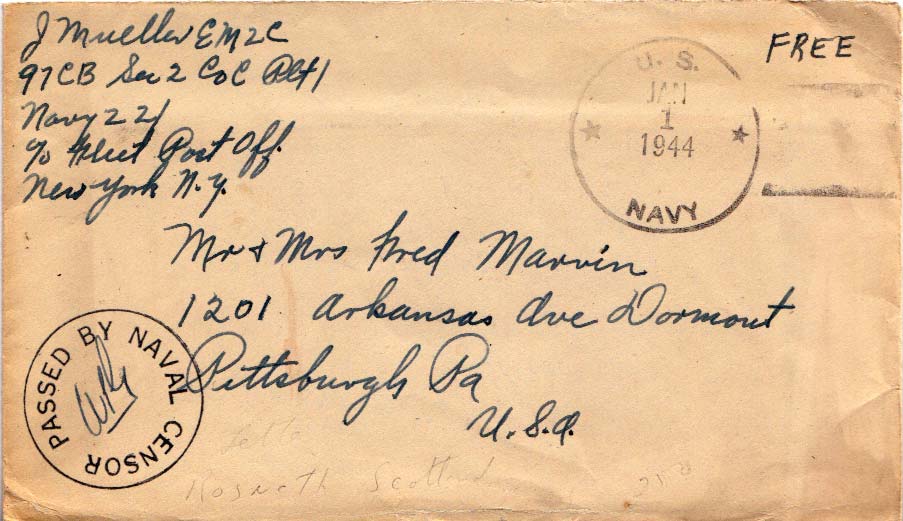 J Mueller EM2C
97CB Sec 2 CoC Plt 1
Navy 221
c/o Fleet Post Off.
New York N.Y.
FREE
U. S.
JAN
1
1944
NAVY
Mr & Mrs Fred Marvin
1201 Arkansas Ave Dormont
Pittsburgh Pa
U.S.A.
PASSED BY NAVAL CENSOR
Rosneath Scotland